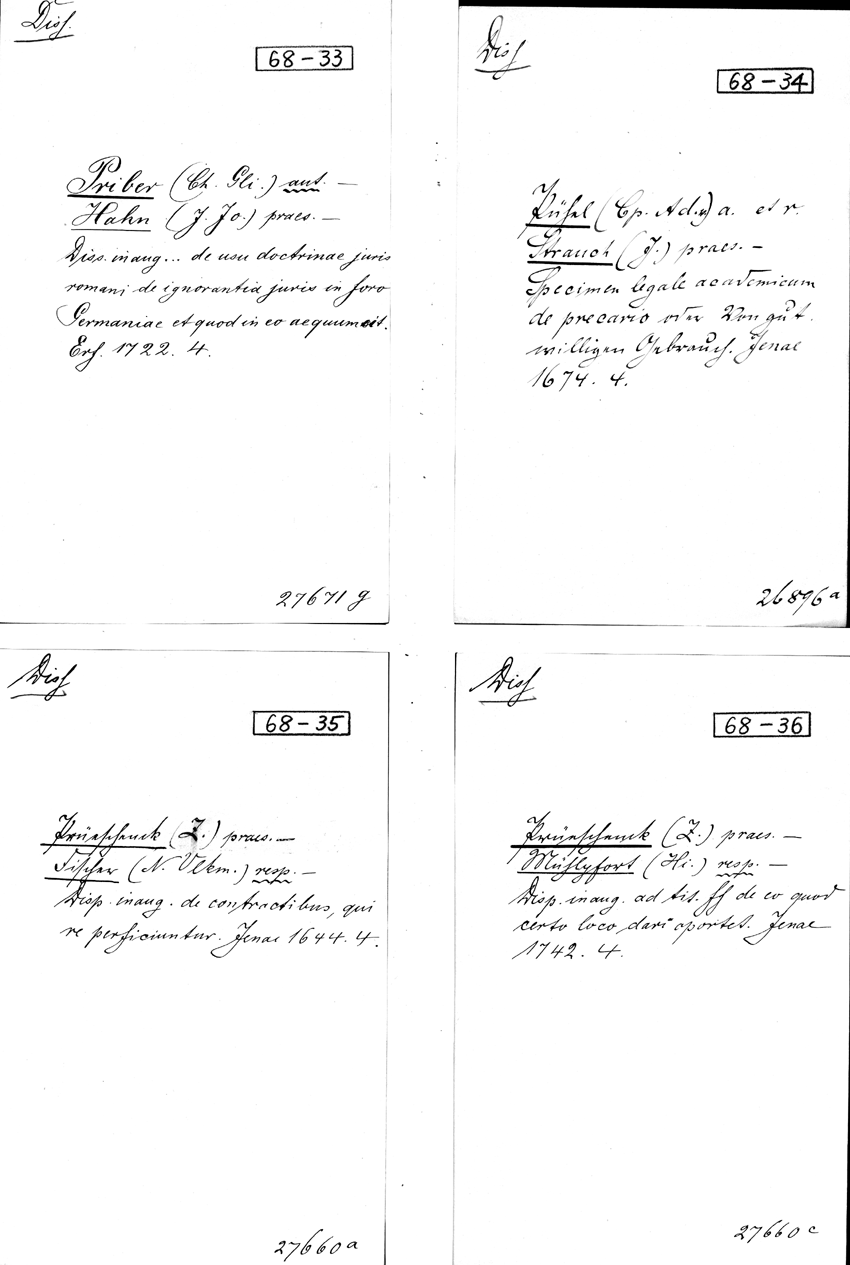 Diss.
68-33
Priber (Ch. Gli.) aut. —
Hahn (J. Jo.) praes. —
Diss. inaug... de usu doctrinae juris
romani de ignorantia juris in foro
Germaniae et quod in eo aequum sit.
Erf. 1722. 4.
27671 g
Diss
68-34
(Cp. Ad.) a. et r.
Strauch (J.) praes. —
Specimen legale academicum
de precario oder Von gut
willigen Gebrauch. Jenae
1674. 4.
26896 a
Diss
68-35
Prüeschenck (Z.) praes. —
Fischer (N. Vlkm.) resp. —
Disp. inaug. de contractibus, qui
re perficiuntur. Jenae 1644. 4.
27660 a
Diss
68-36
Prüeschenck (Z.) praes. —
Mühlpfort (Hi.) resp. —
Disp. inaug. ad tit. ff de eo quod
certo loco dari oportet. Jenae
1742. 4.
27660 c